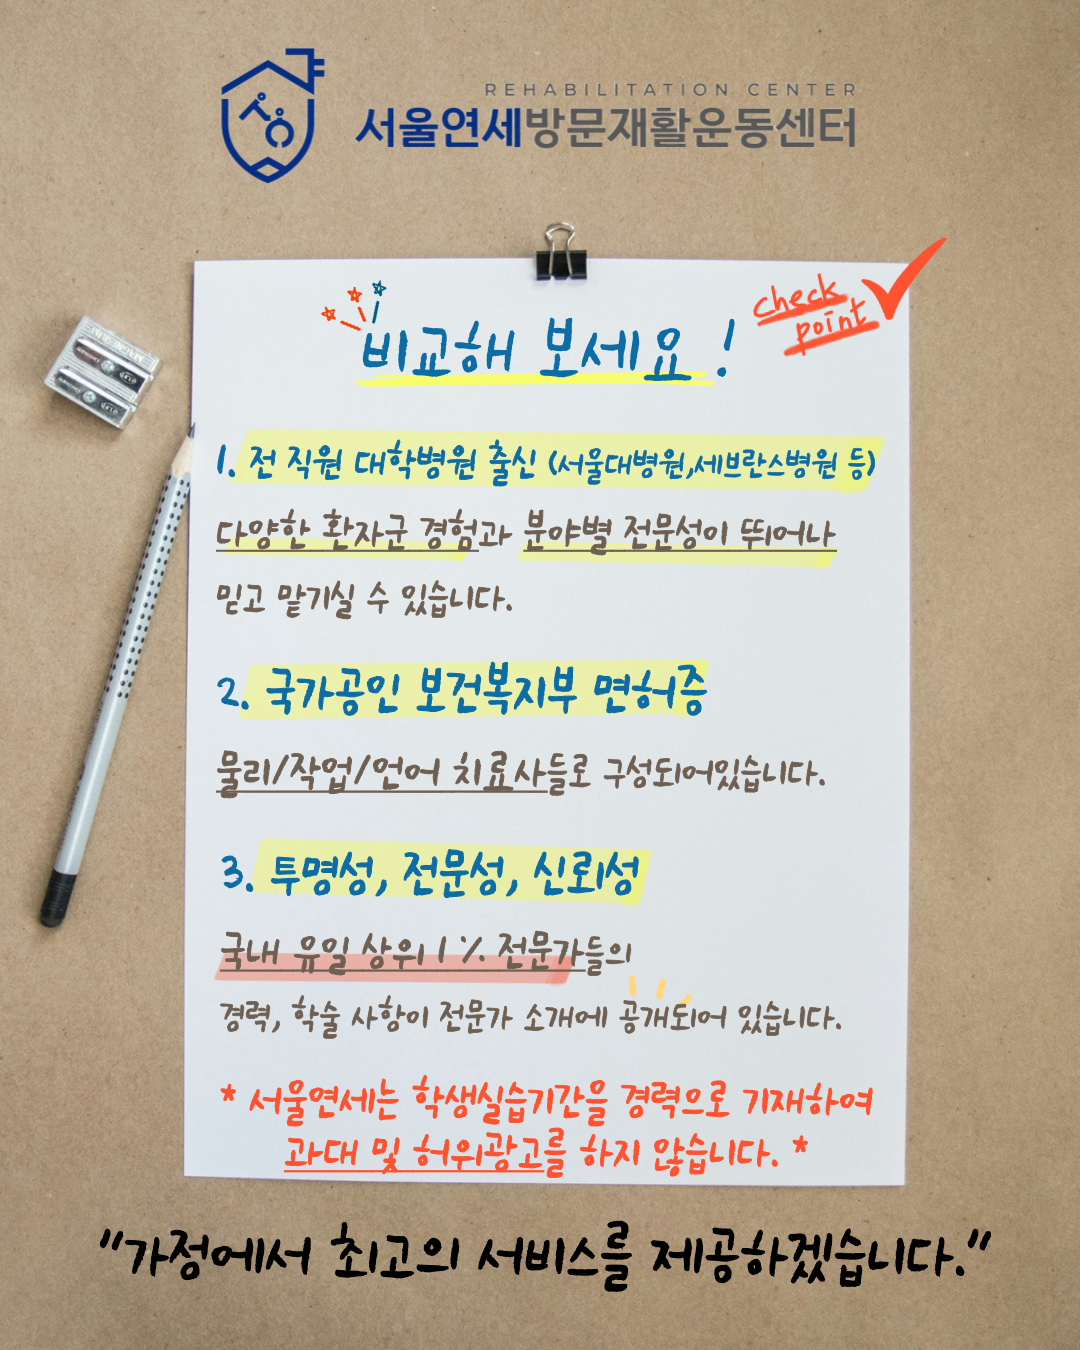 REHABILITATION CENTER
서울연세방문재활운동센터
check
point
비교해 보세요!
1. 전 직원 대학병원 출신 (서울대병원,세브란스병원 등)
다양한 환자군 경험과 분야별 전문성이 뛰어나
믿고 맡기실 수 있습니다.
2. 국가공인 보건복지부 면허증
물리/작업/언어 치료사들로 구성되어있습니다.
3. 투명성, 전문성, 신뢰성
국내 유일 상위 1% 전문가들의
경력, 학술 사항이 전문가 소개에 공개되어 있습니다.
* 서울연세는 학생실습기간을 경력으로 기재하여
과대 및 허위광고를 하지 않습니다. *
"가정에서 최고의 서비스를 제공하겠습니다."